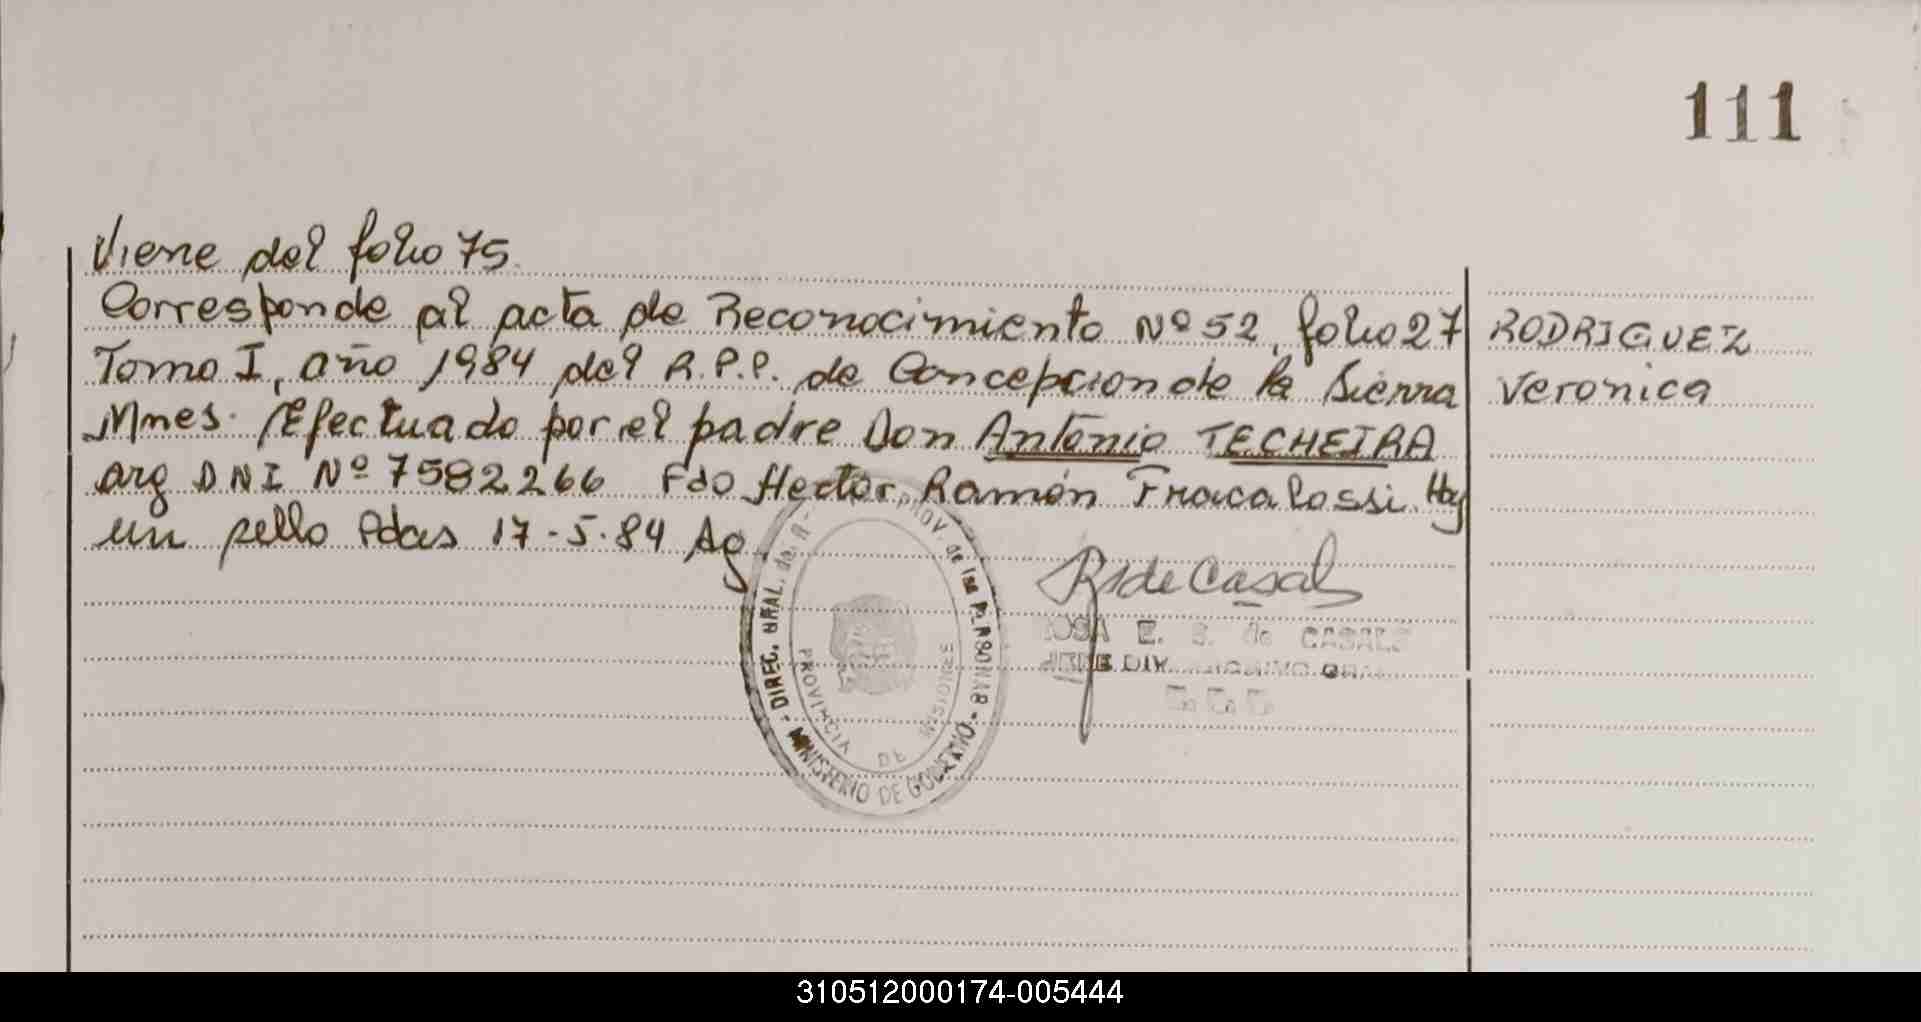 111
Viene del folio 75.
Corresponde al acta de Reconocimiento Nº 52, folio 27
Tomo I, año 1984 del R.P.P. de Concepcion de la Sierra
Mnes. Efectuado por el padre Don Antonio TECHEIRA
arg DNI Nº 7582266 Fdo Hector Ramón Fracalossi. Hay
un sello Pdas 17-5-84 Ag
RODRIGUEZ
Veronica
R de Casals
E. S. de CASALS
DIREC. GRAL. del R. PROV. de las PERSONAS
MINISTERIO DE GOBIERNO
PROVINCIA DE MISIONES
310512000174-005444